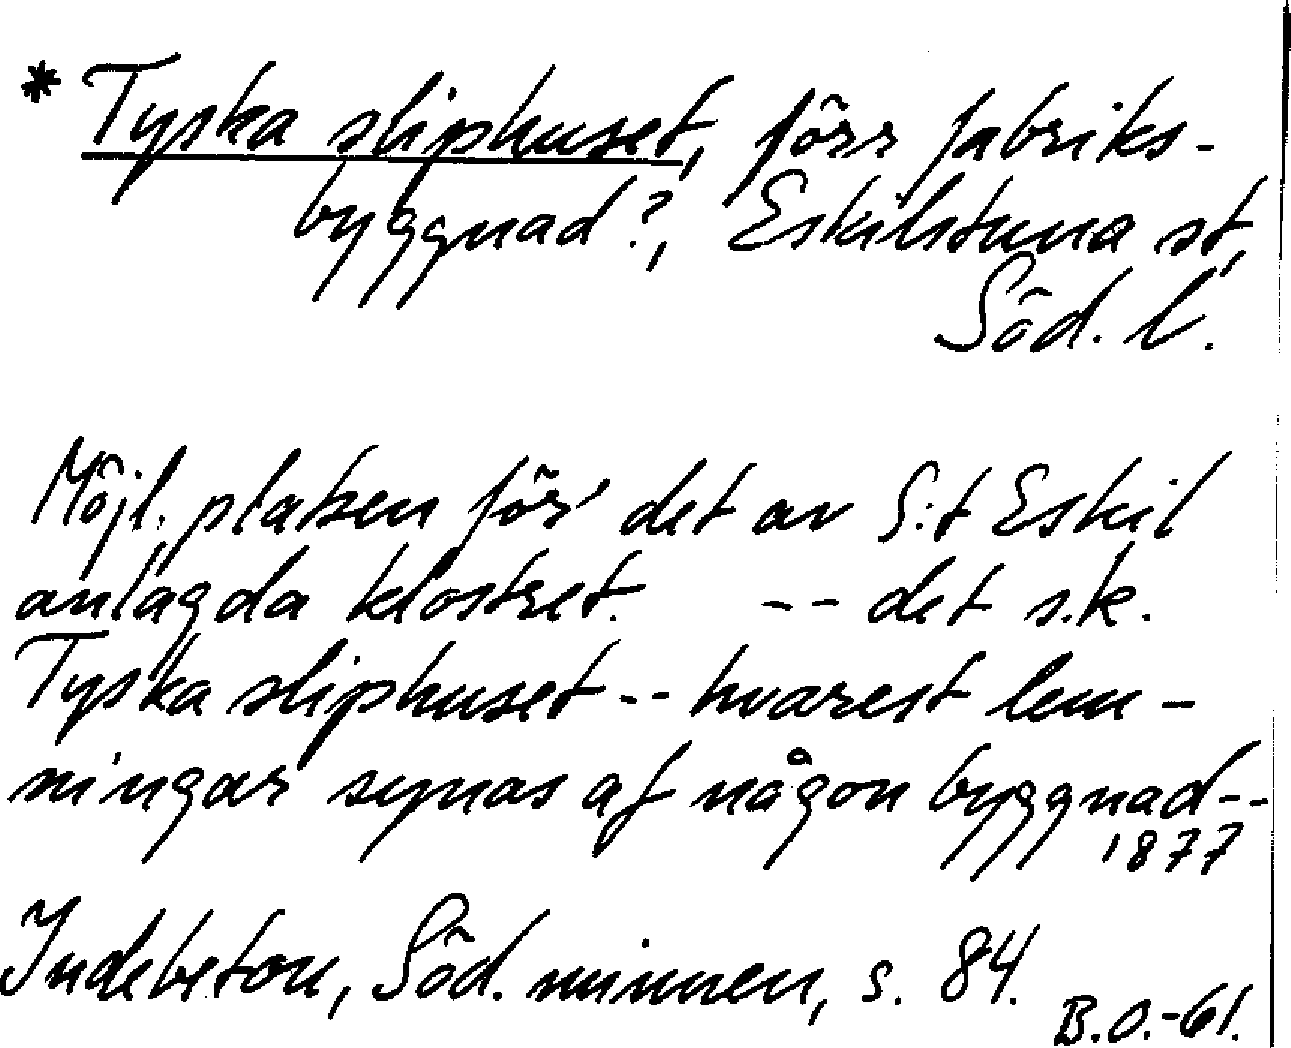 * Tyska sliphuset, förr fabriks-
byggnad?, Eskilstuna st,
Söd. l.
Möjl. platsen för det av S:t Eskil
anlagda klostret. -- det s.k.
Tyska sliphuset -- hvarest lem-
ningar synas af någon byggnad --
1877
Indebetou, Söd. minnen, s. 84.
B.O.-61.